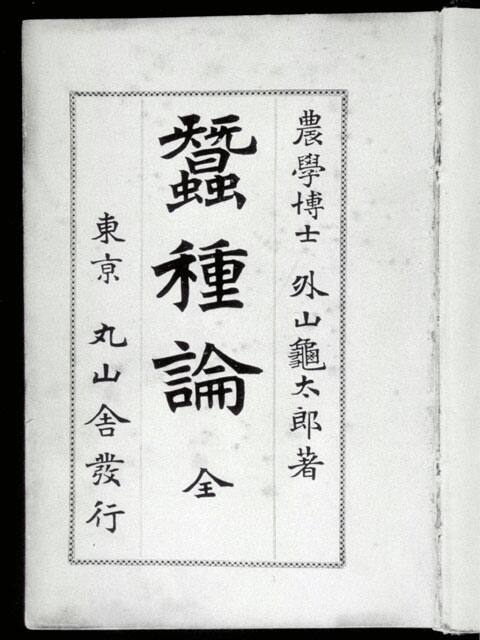 農學博士 外山龜太郎著
蠶種論 全
東京 丸山舎發行